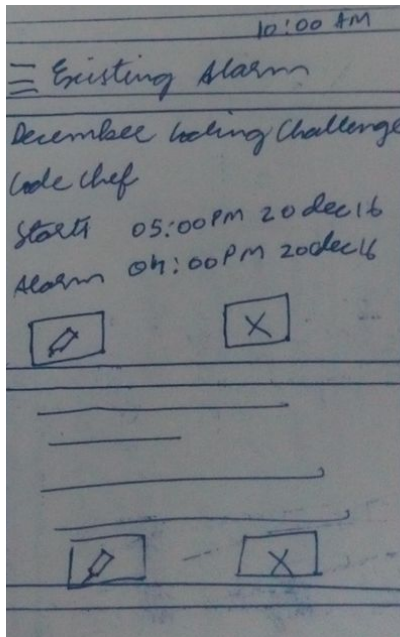 10:00 AM
Existing Alarm
December Coding Challenge
Code Chef
Starts 05:00PM 20dec16
Alarm 04:00PM 20dec16
X
X